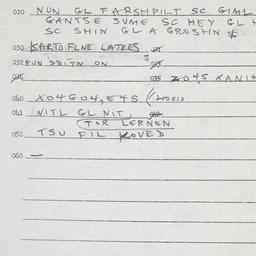 020 NUN GL FARSHPILT SC GIML
GANTSE SUME SC HEY GL
SC SHIN GL A GROSHN
030 KARTOFLNE LATKES
032 FUN DRITN ON
035 ZO4,S XANI
040 XO4GU4,E4S (200010
041 NITL GL NIT,
(TOR LERNEN
050 TSU FIL KOVED
060 —